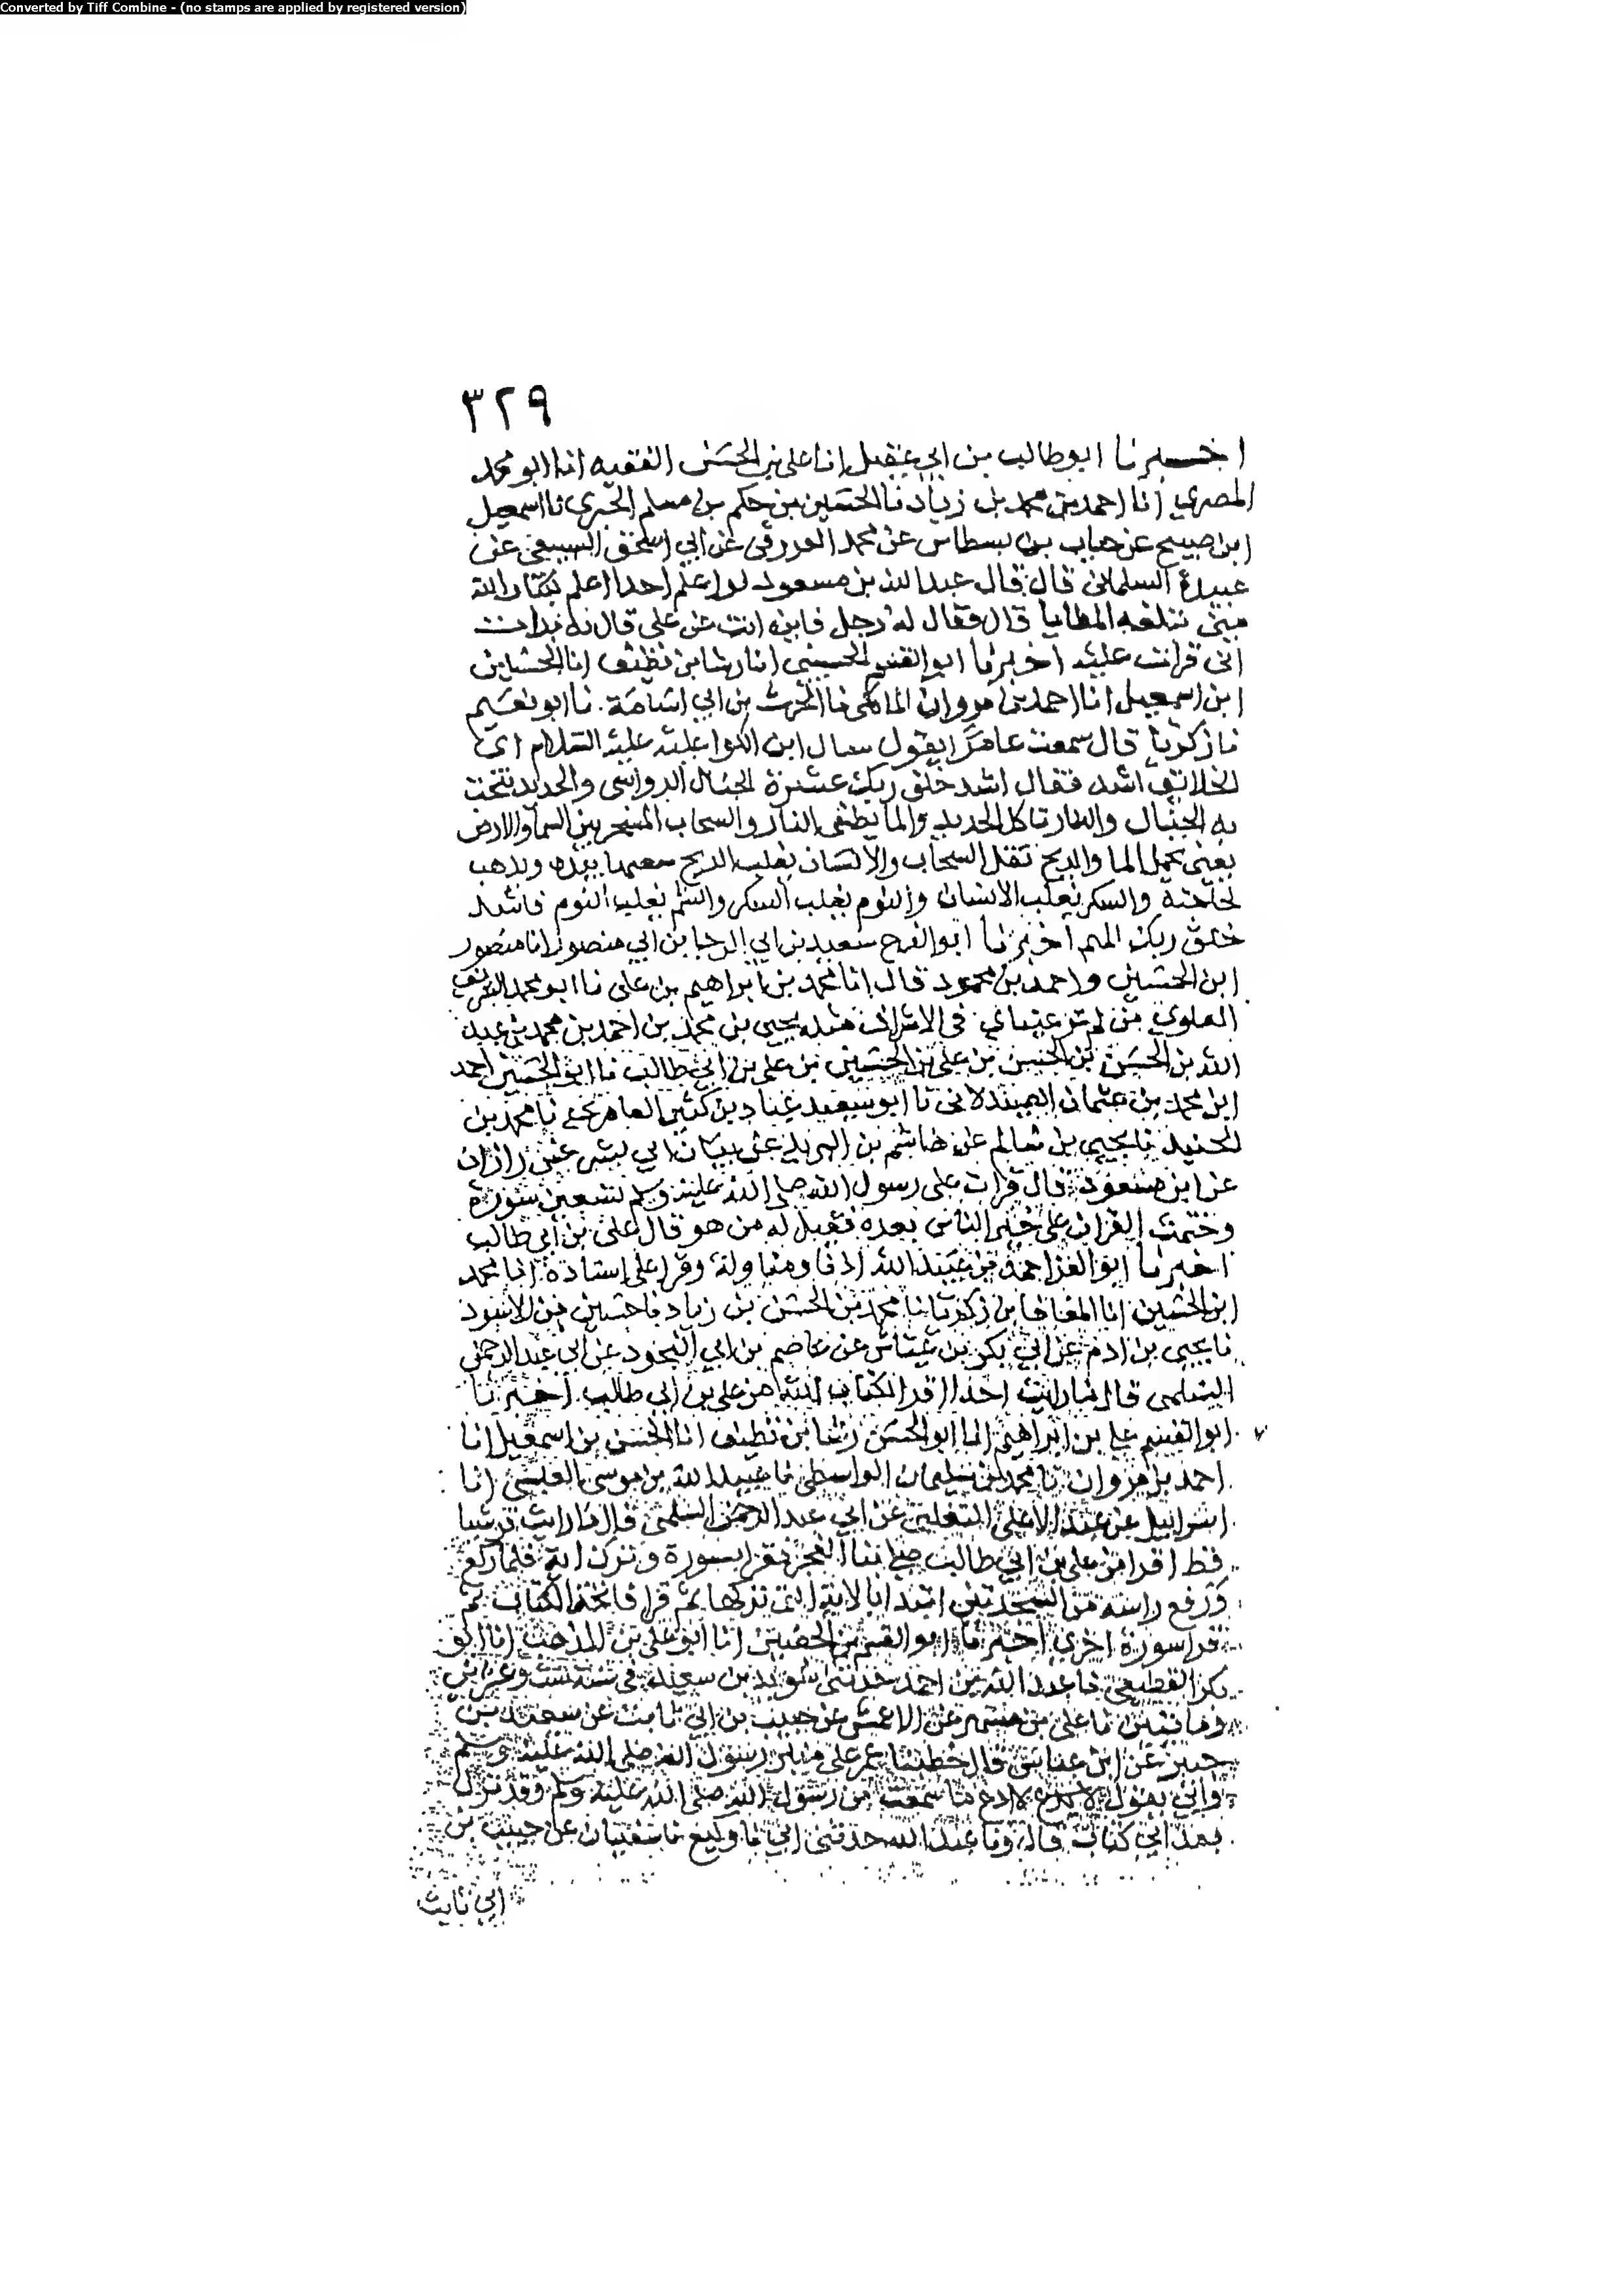 Converted by Tiff Combine - (no stamps are applied by registered version)
٣٢٩
اخبرنا ابو طالب بن ابي عقيل انا علي بن الحسن الفقيه انا ابو محمد
المصري انا احمد بن محمد بن زياد نا الحسين بن حكم بن مسلم الحبري نا اسمعيل
ابن صبيح عن جناب بن نسطاس عن محمد العرزمي عن ابي اسحق السبيعي عن
عبيدة السلماني قال قال عبد الله بن مسعود لو اعلم احدا اعلم بكتاب الله
مني تبلغه المطايا قال فقال له رجل فاين انت عن علي قال به بدات
اني قرات عليه اخبرنا ابو القسم الحسيني انا رشا بن نظيف انا الحسن
ابن اسمعيل انا احمد بن مروان المالكي نا الحرث بن ابي اسامة نا ابو نعيم
نا زكريا قال سمعت عامرا يقول سال ابن الكوا عليا عليه السلام اي
الخلائق اشد فقال اشد خلق ربك عشرة الجبال الرواسي والحديد تنحت
به الجبال والنار تاكل الحديد والما يطفى النار والسحاب المسخر بين السما والارض
يعني يحمل الما والريح تقل السحاب والانسان يغلب الريح يعصمها بيده ويذهب
لحاجته والسكر يغلب الانسان والنوم يغلب السكر والهم يغلب النوم فاشد
خلق ربك الهم اخبرنا ابو الفرج سعيد بن ابي الرجا بن ابي منصور انا منصور
ابن الحسين واحمد بن محمود قالا انا محمد بن ابراهيم بن علي نا ابو محمد الشريف
العلوي من لم تر عيناي في الاشراف مثله يحيى بن محمد بن احمد بن محمد بن عبيد
الله بن الحسن بن الحسين بن علي بن الحسين بن علي بن ابي طالب نا ابو الحسين احمد
ابن محمد بن عثمان الصيدلاني نا ابو سعيد عباد بن كثير العامري نا محمد بن
الجنيد نا يحيى بن سالم عن هاشم بن البريد عن بيان ابي بشر عن زاذان
عن ابن مسعود قال قرات على رسول الله صلى الله عليه وسلم تسعين سورة
وختمت القران على خير الناس بعده فقيل له من هو قال علي بن ابي طالب
اخبرنا ابو العز احمد بن عبيد الله اذنا ومناولة وقرا علي اسناده انا محمد
ابن الحسين انا المعافا بن زكريا نا محمد بن الحسن بن زياد نا حسين بن الاسود
نا يحيى بن ادم عن ابي بكر بن عياش عن عاصم بن ابي النجود عن ابي عبد الرحمن
السلمي قال ما رايت احدا اقرا لكتاب الله من علي بن ابي طالب اخبرنا
ابو القسم علي بن ابراهيم انا ابو الحسن رشا بن نظيف انا الحسن بن اسمعيل انا
احمد بن مروان نا محمد بن سليمان الواسطي نا عبيد الله بن موسى العبسي انا
اسرائيل عن عبد الاعلى الثعلبي عن ابي عبد الرحمن السلمي قال ما رايت قرشيا
قط اقرا من علي بن ابي طالب صلى بنا الفجر فقرا بسورة وترك اية فلما ركع
ورفع راسه من السجدتين ابتدا بالاية التي تركها ثم قرا فاتحة الكتاب ثم
قرا سورة اخرى اخبرنا ابو القسم بن الحصين انا ابو علي بن المذهب انا ابو
بكر القطيعي نا عبد الله بن احمد حدثني سويد بن سعيد في سنة ست وعشرين
ومائتين نا علي بن مسهر عن الاعمش عن حبيب بن ابي ثابت عن سعيد بن
جبير عن ابن عباس قال خطبنا عمر على منبر رسول الله صلى الله عليه وسلم
وابي يقول لا ادع ما سمعت من رسول الله صلى الله عليه وسلم وقد نزل
بعد ابي كتاب قال ونا عبد الله حدثني ابي نا وكيع نا سفيان عن حبيب بن
ابي ثابت